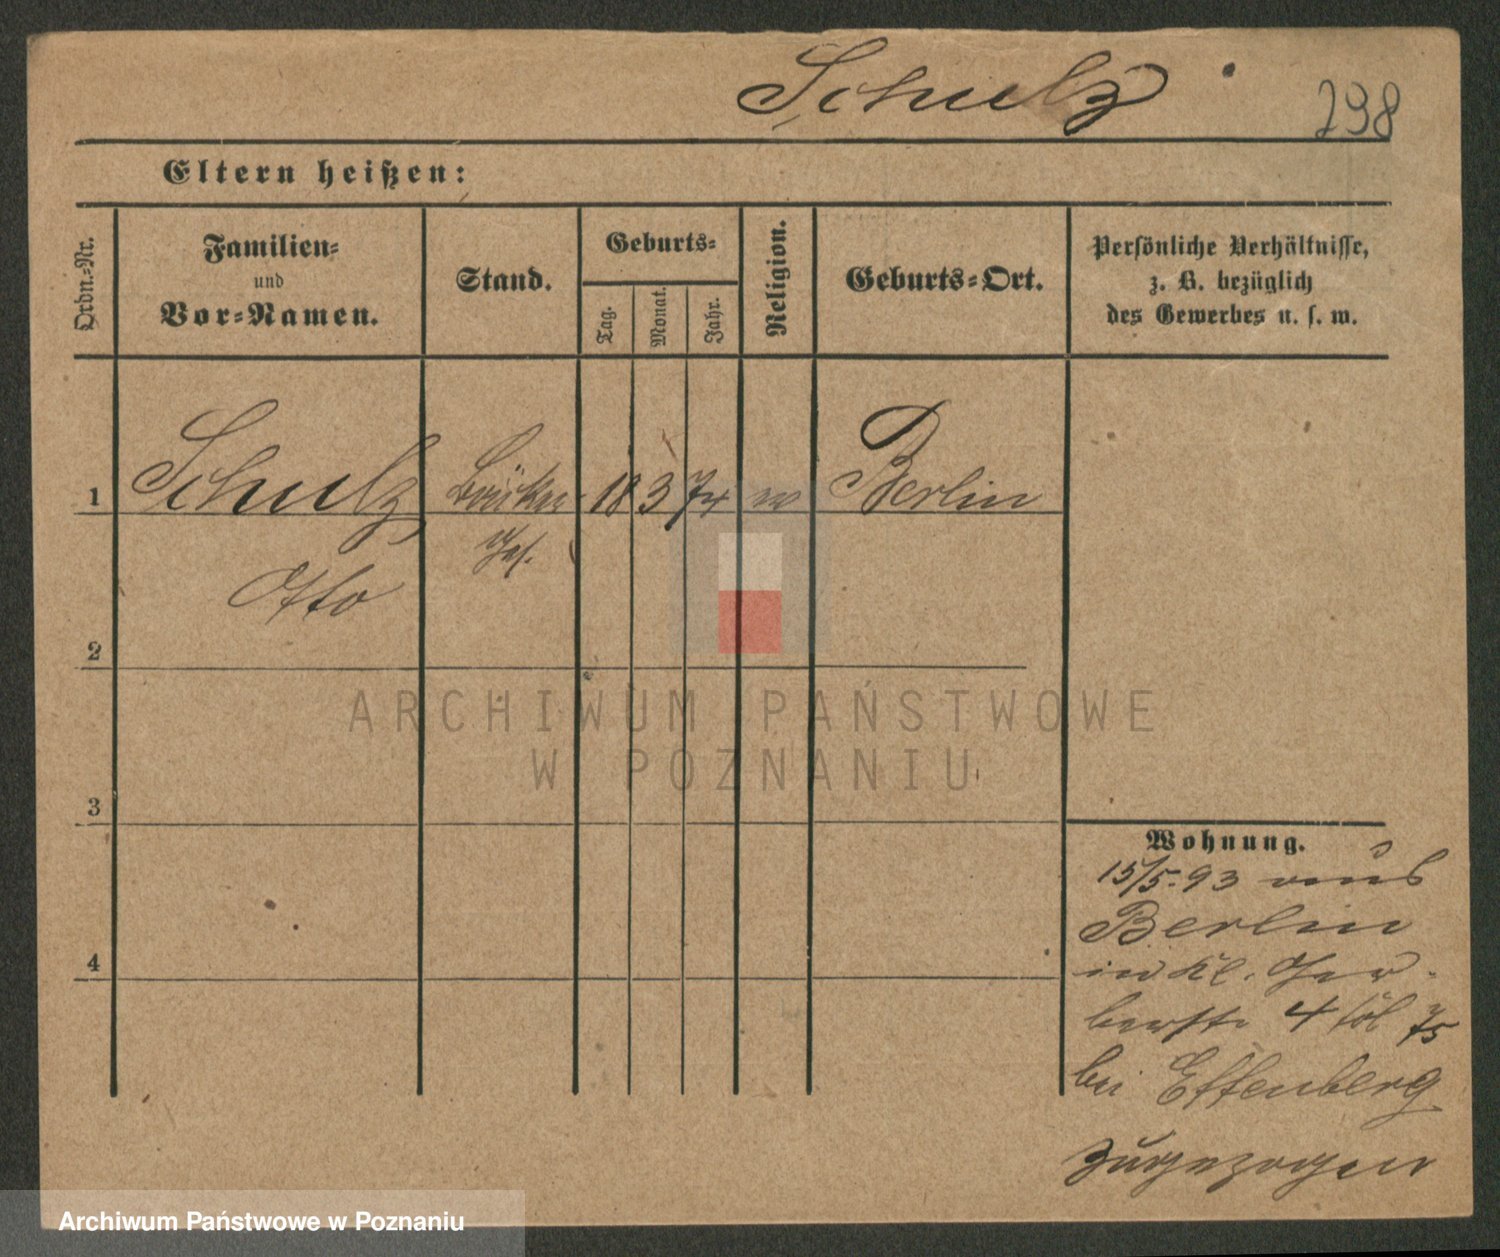 Schulz
298
Eltern heißen:
Ordn.=Nr.
Familien=
und
Vor=Namen.
Stand.
Geburts=
Tag.
Monat.
Jahr.
Religion.
Geburts=Ort.
Persönliche Verhältnisse,
z. B. bezüglich
des Gewerbes u. s. w.
1 Schulz 18 3 74 Berlin
Ges.
Otto
2
3
4
Wohnung.
15/5. 93 aus
Berlin
in Kl. Ger-
berstr 4
bei Effenberg
zugezogen
ARCHIWUM PAŃSTWOWE
W POZNANIU
Archiwum Państwowe w Poznaniu